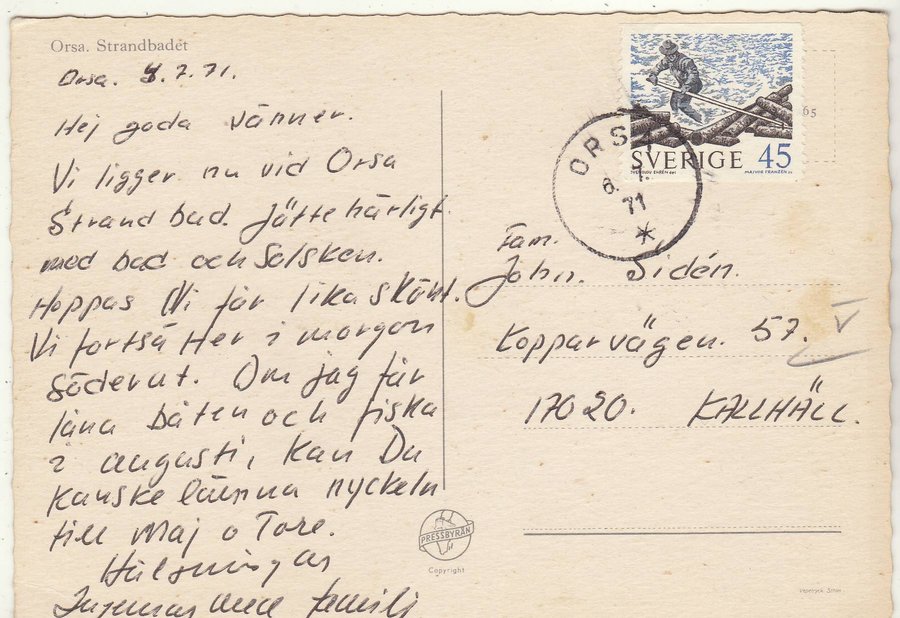 Orsa. Strandbadet
Orsa. 8.7.71.
Hej goda vänner.
Vi ligger nu vid Orsa
Strand bad. Jätte härligt
med bad och Solsken.
Hoppas Ni får lika skönt.
Vi fortsätter i morgon
Söderut. Om jag får
låna båten och fiska
i augusti, kan Du
kanske lämna nyckeln
till Maj o Tore.
Hälsningar
Ingemar med familj
65
SVERIGE 45
ORSA
8.7.
71
Fam.
John. Sidén.
Kopparvägen. 57. V
17020. KALLHÄLL.
PRESSBYRÅN
Copyright